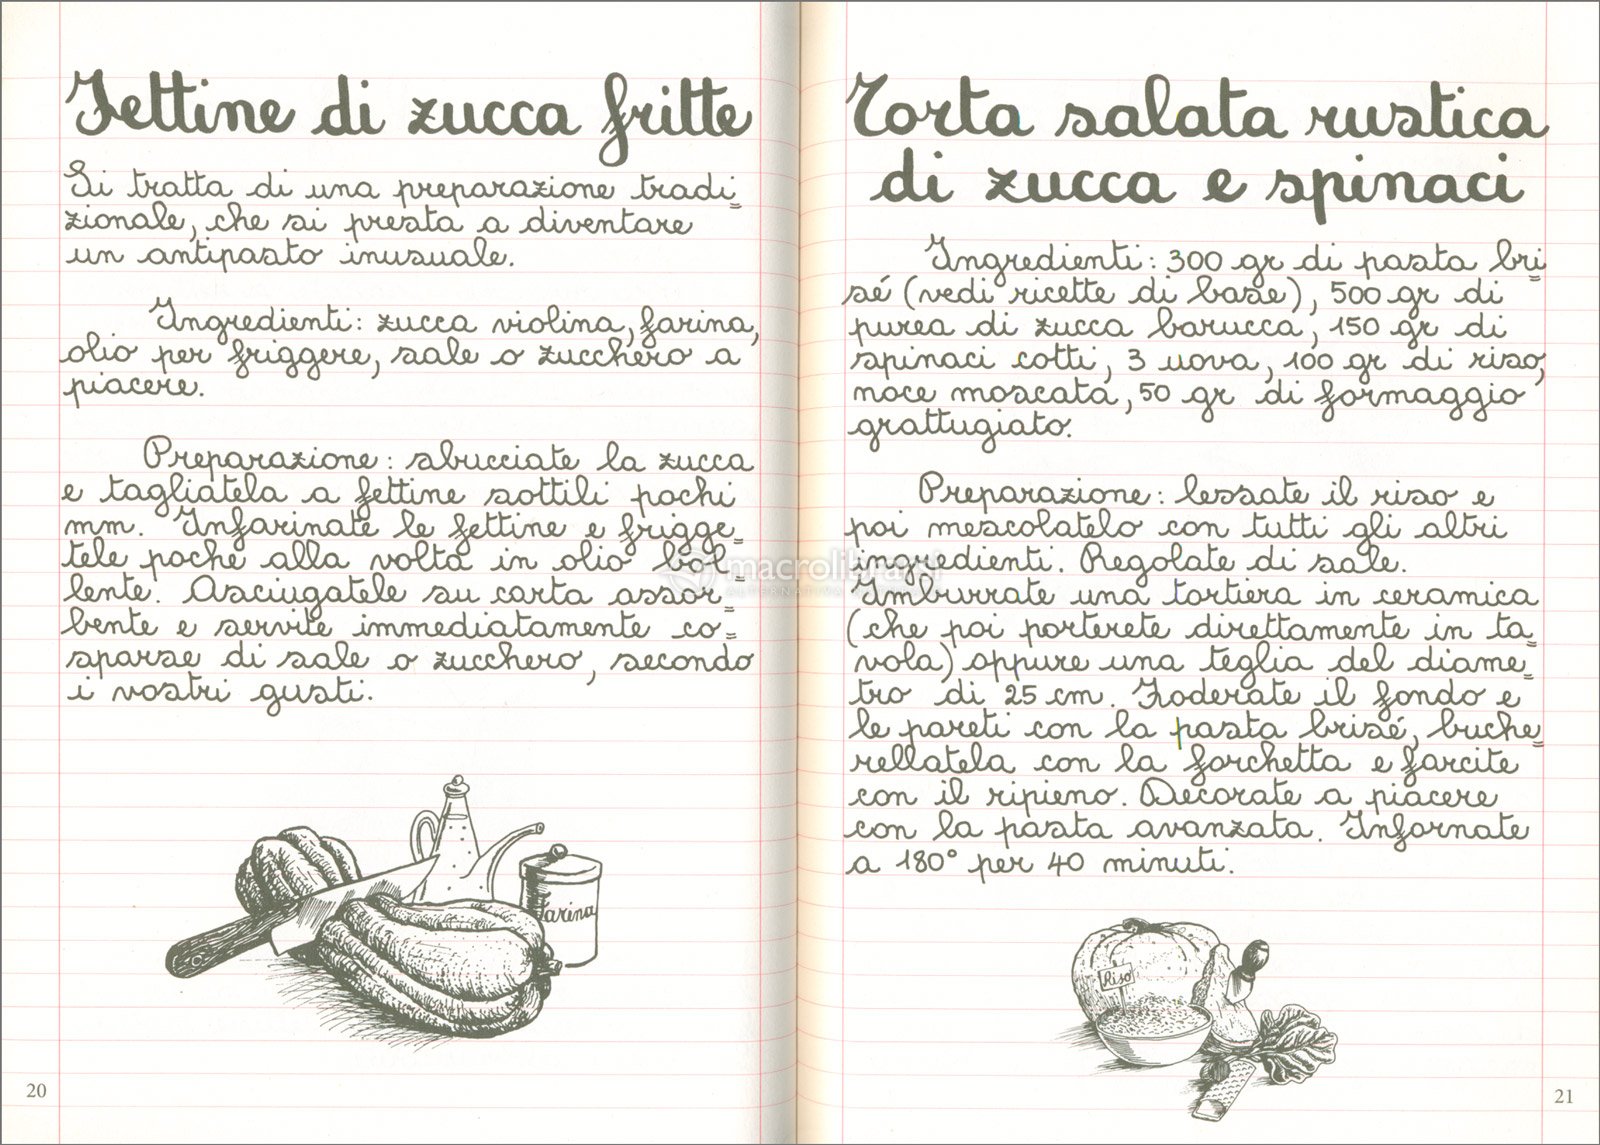 Fettine di zucca fritte
Si tratta di una preparazione tradi=
zionale, che si presta a diventare
un antipasto inusuale.
Ingredienti: zucca violina, farina,
olio per friggere, sale o zucchero a
piacere.
Preparazione: sbucciate la zucca
e tagliatela a fettine sottili pochi
mm. Infarinate le fettine e frigge=
tele poche alla volta in olio bol=
lente. Asciugatele su carta assor=
bente e servite immediatamente co=
sparse di sale o zucchero, secondo
i vostri gusti.
Farina
20
Torta salata rustica
di zucca e spinaci
Ingredienti: 300 gr di pasta bri=
sé (vedi ricette di base), 500 gr di
purea di zucca barucca, 150 gr di
spinaci cotti, 3 uova, 100 gr di riso,
noce moscata, 50 gr di formaggio
grattugiato.
Preparazione: lessate il riso e
poi mescolatelo con tutti gli altri
ingredienti. Regolate di sale.
Imburrate una tortiera in ceramica
(che poi porterete direttamente in ta=
vola) oppure una teglia del diame=
tro di 25 cm. Foderate il fondo e
le pareti con la pasta brisé, buche=
rellatela con la forchetta e farcite
con il ripieno. Decorate a piacere
con la pasta avanzata. Infornate
a 180° per 40 minuti.
Riso
21
macrolibrarsi